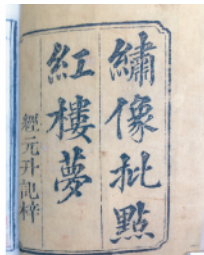 繡像批點
紅樓夢
經元升記梓